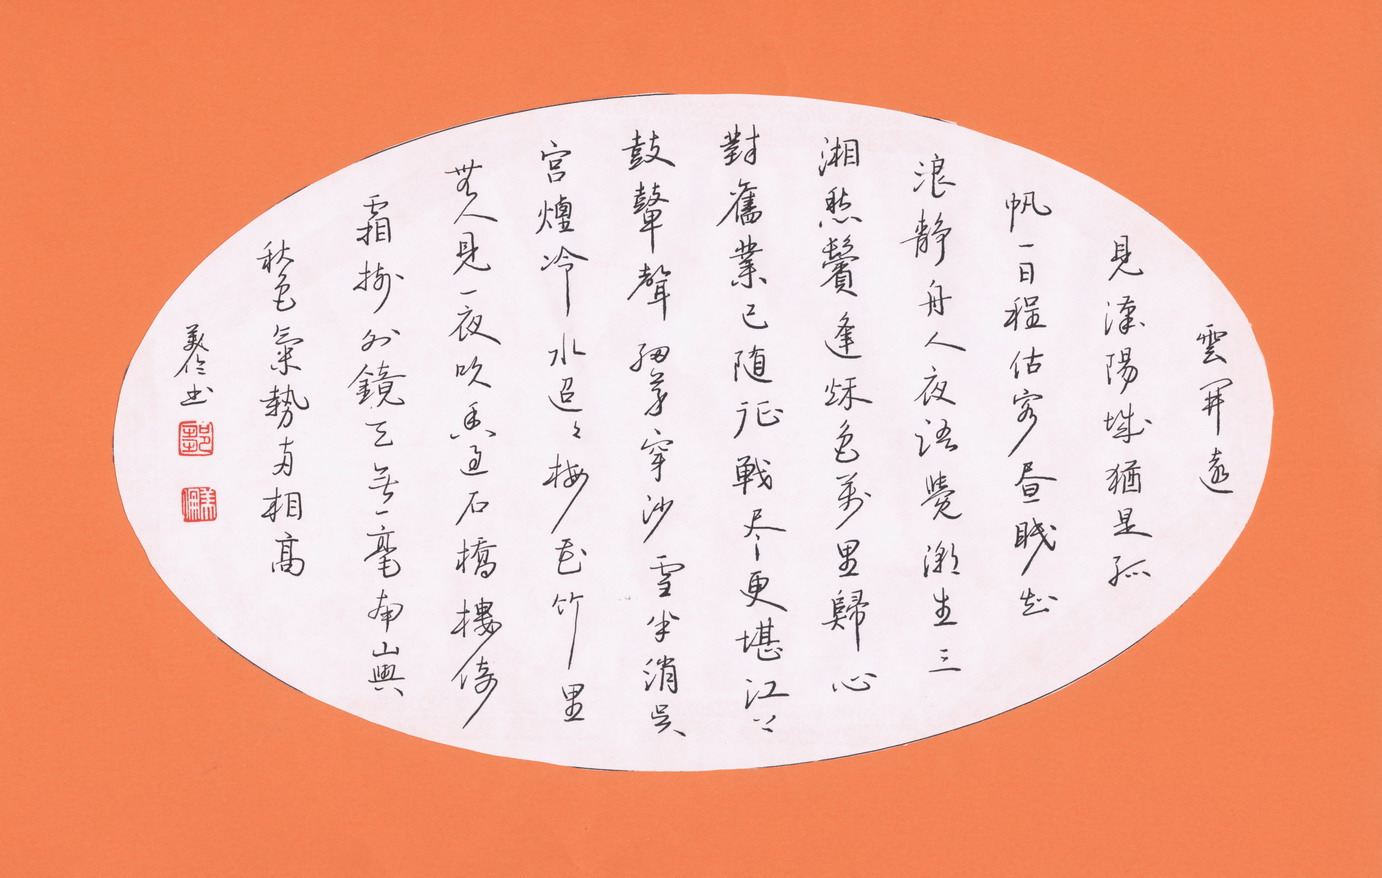 雲開遠
見漢陽城猶是孤
帆一日程估客晝眠知
浪靜舟人夜語覺潮生三
湘愁鬢逢秋色萬里歸心
對舊業已随征戰尽更堪江上
鼓鼙聲細草穿沙雪半消吳
宮煙冷水迢々梅花竹里
無人見一夜吹香過石橋樓倚
霜樹外鏡天無一毫南山與
秋色氣勢兩相高
美书